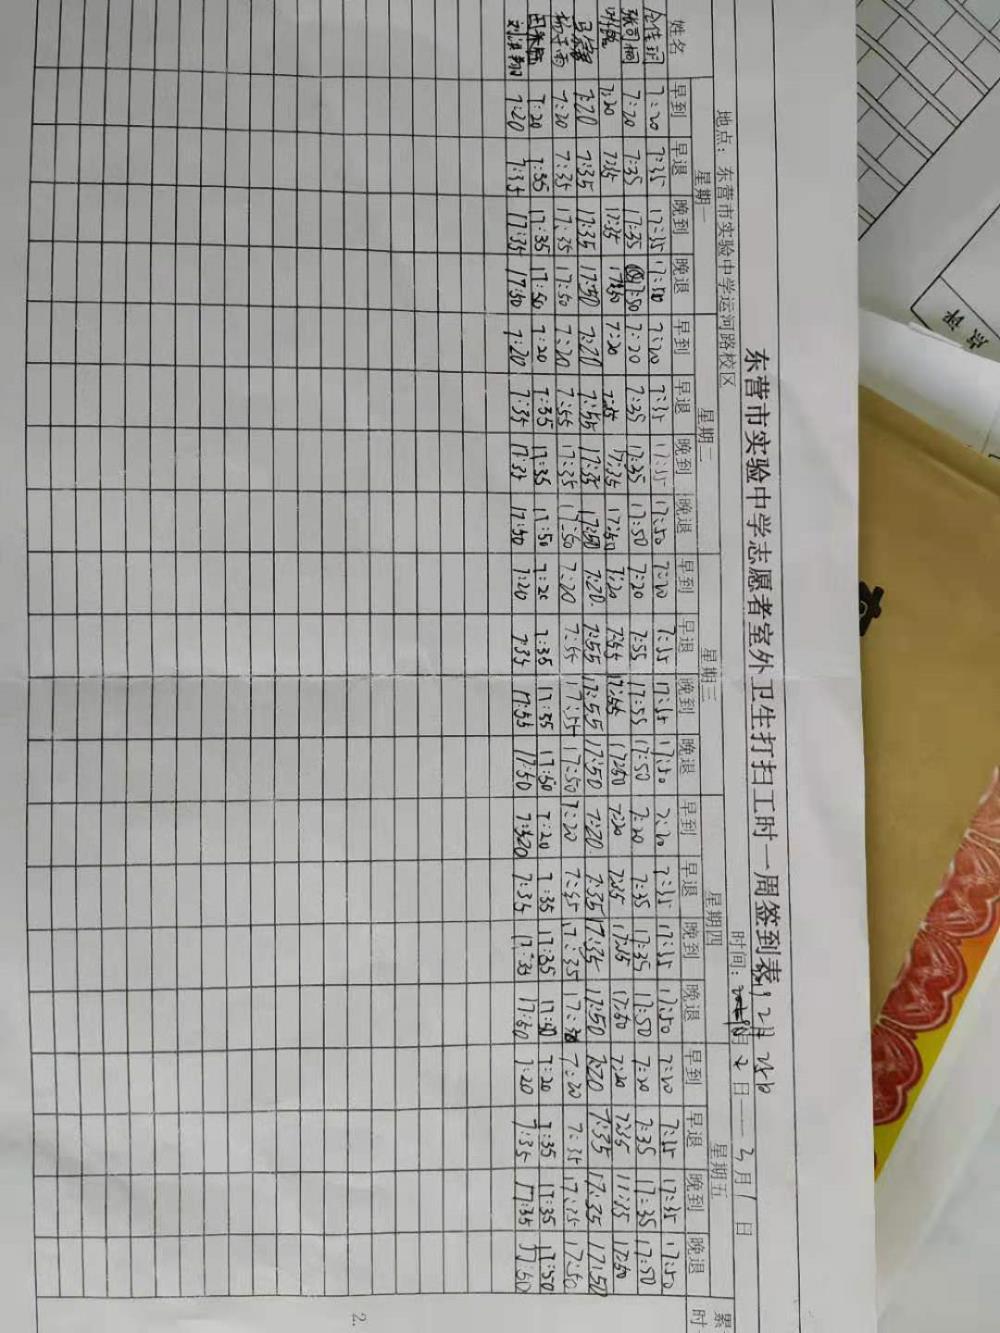 东营市实验中学志愿者室外卫生打扫工时一周签到表
2月25日
地点：东营市实验中学运河路校区 时间： 2 日——3月1日
姓名 星期一 星期二 星期三 星期四 星期五 累
早到 早退 晚到 晚退 早到 早退 晚到 晚退 早到 早退 晚到 晚退 早到 早退 晚到 晚退 早到 早退 晚到 晚退 时
7:20 7:35 17:35 17:50 7:20 7:35 17:35 17:50 7:20 7:35 17:35 17:50 7:20 7:35 17:35 17:50 7:20 7:35 17:35 17:50
7:20 7:35 17:35 17:50 7:20 7:35 17:35 17:50 7:20 7:55 17:55 17:50 7:20 7:35 17:35 17:50 7:20 7:35 17:35 17:50
7:20 7:35 17:35 17:50 7:20 17:35 17:50 7:20 7:55 17:50 7:20 7:35 17:35 17:50 7:20 7:35 17:50
7:20 7:35 17:35 17:50 7:20 7:55 17:35 17:50 7:20 7:55 17:55 17:50 7:20 7:35 17:35 17:50 7:20 7:35 17:35 17:50
7:20 7:35 17:35 17:50 7:20 7:55 17:35 17:50 7:20 7:55 17:50 7:20 7:35 17:35 7:20 7:35 17:35 17:50
7:20 7:35 17:35 17:50 7:20 7:35 17:35 17:50 7:20 7:35 17:35 17:50 7:20 7:35 17:35 17:50 7:20 7:35 17:35 17:50
7:20 7:35 17:35 17:50 7:20 7:35 17:35 17:50 7:20 7:35 17:50 7:35 17:35 17:50 7:20 7:35 17:35 17:50
2.
点评